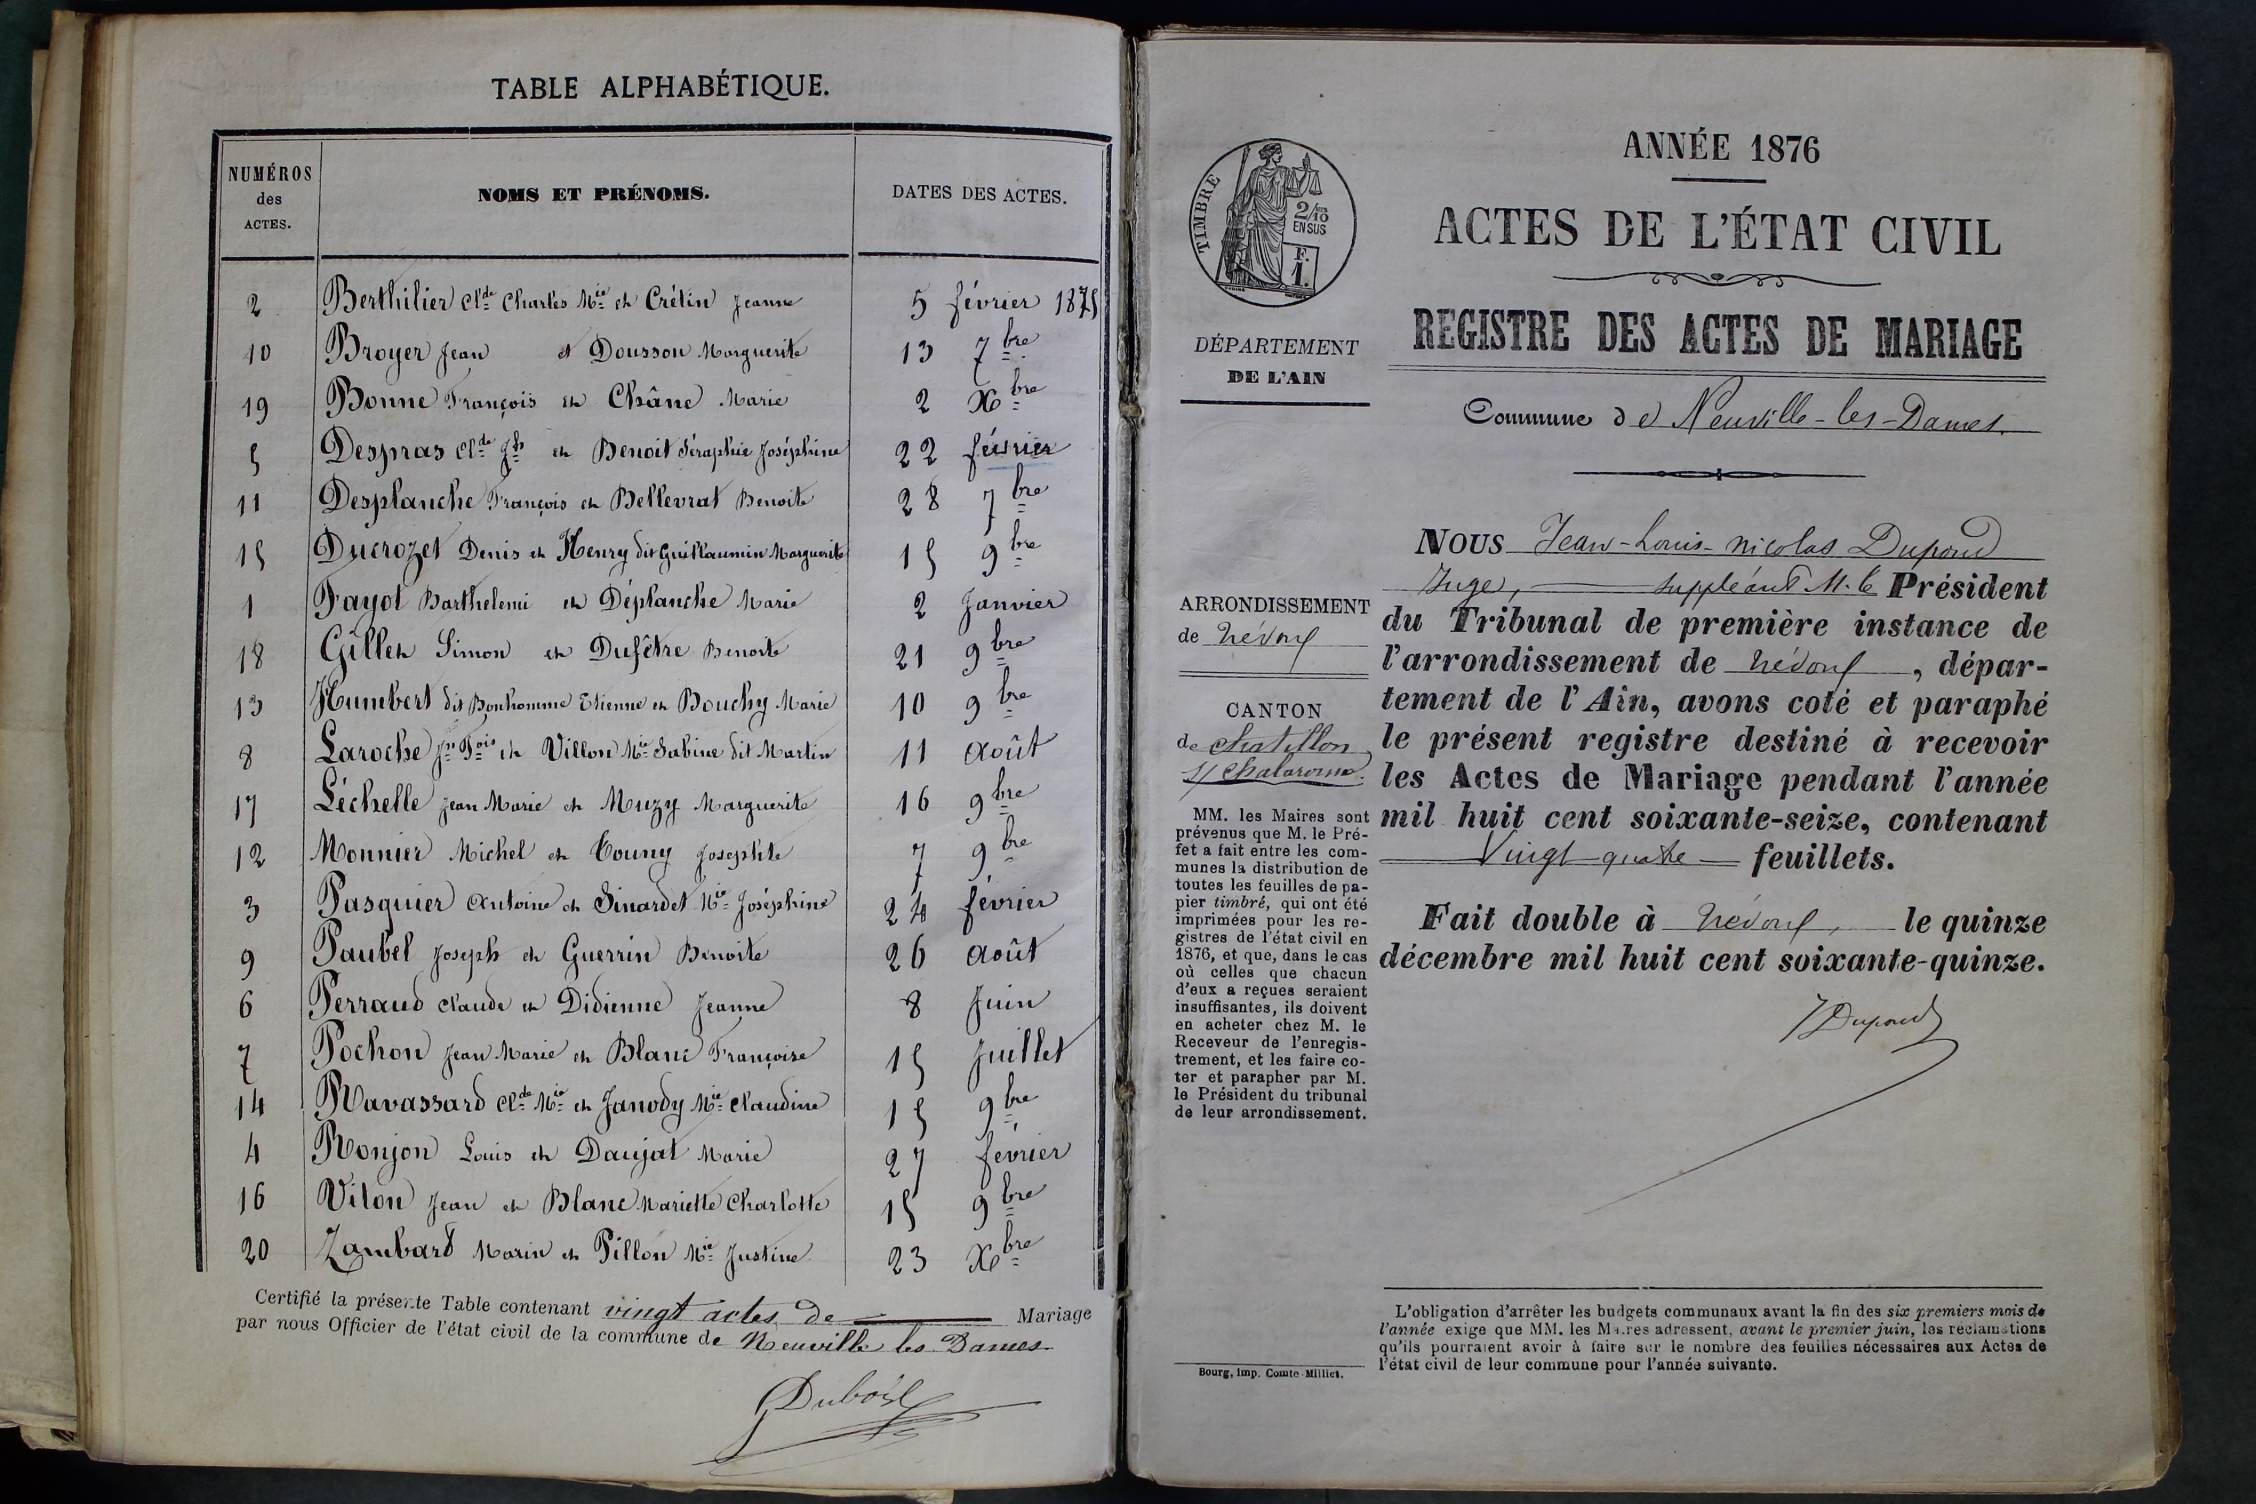 TABLE ALPHABÉTIQUE.
NUMÉROS des ACTES. NOMS ET PRÉNOMS. DATES DES ACTES.
2 Berthilier Cl.de Charles M.ie et Crétin Jeanne 5 février 1875
10 Broyer Jean et Dousson Marguerite 13 7bre
19 Bonne François et Châne Marie 2 Xbre
5 Despras Cl.de J.h et Benoit Séraphie Joséphine 22 février
11 Desplanche François et Bellevrat Benoite 28 7bre
15 Ducrozet Denis et Henry dit Guillaumin Marguerite 15 9bre
1 Fayol Barthelemi et Déplanche Marie 2 Janvier
18 Gillet Simon et Dufêtre Benoite 21 9bre
13 Humbert dit Bonhomme Etienne et Bouchy Marie 10 9bre
8 Laroche J.n F.ois et Villon M.ie Sabine dit Martin 11 Août
17 Léchelle Jean Marie et Muzy Marguerite 16 9bre
12 Monnier Michel et Couny Josephte 7 9bre
3 Pasquier Antoine et Sinardet M.ie Joséphine 24 février
9 Paubel Joseph et Guerrin Benoite 26 Août
6 Perraud Claude et Didienne Jeanne 8 Juin
7 Pochon Jean Marie et Blanc Françoise 15 Juillet
14 Ravassard Cl.de M.ie et Janody M.ie Claudine 15 9bre
4 Ronjon Louis et Daujat Marie 27 février
16 Viton Jean et Blanc Mariette Charlotte 15 9bre
20 Zambard Marin et Pillon M.ie Justine 23 Xbre
Certifié la présente Table contenant vingt actes de Mariage
par nous Officier de l'état civil de la commune de Neuville les Dames
TIMBRE
2/10
EN SUS
F.
1.
DÉPARTEMENT
DE L'AIN
ARRONDISSEMENT
de Trévoux
CANTON
de Chatillon
s/ Chalaronne.
MM. les Maires sont
prévenus que M. le Pré-
fet a fait entre les com-
munes la distribution de
toutes les feuilles de pa-
pier timbré, qui ont été
imprimées pour les re-
gistres de l'état civil en
1876, et que, dans le cas
où celles que chacun
d'eux a reçues seraient
insuffisantes, ils doivent
en acheter chez M. le
Receveur de l'enregis-
trement, et les faire co-
ter et parapher par M.
le Président du tribunal
de leur arrondissement.
Bourg, imp. Comte-Milliet.
ANNÉE 1876
ACTES DE L'ÉTAT CIVIL
REGISTRE DES ACTES DE MARIAGE
Commune de Neuville-les-Dames.
NOUS Jean-Louis-Nicolas Dupond
Juge, suppléant M. le Président
du Tribunal de première instance de
l'arrondissement de Trévoux, dépar-
tement de l'Ain, avons coté et paraphé
le présent registre destiné à recevoir
les Actes de Mariage pendant l'année
mil huit cent soixante-seize, contenant
Vingt quatre feuillets.
Fait double à Trévoux, le quinze
décembre mil huit cent soixante-quinze.
Dupond
L'obligation d'arrêter les budgets communaux avant la fin des six premiers mois de
l'année exige que MM. les Maires adressent, avant le premier juin, les réclamations
qu'ils pourraient avoir à faire sur le nombre des feuilles nécessaires aux Actes de
l'état civil de leur commune pour l'année suivante.